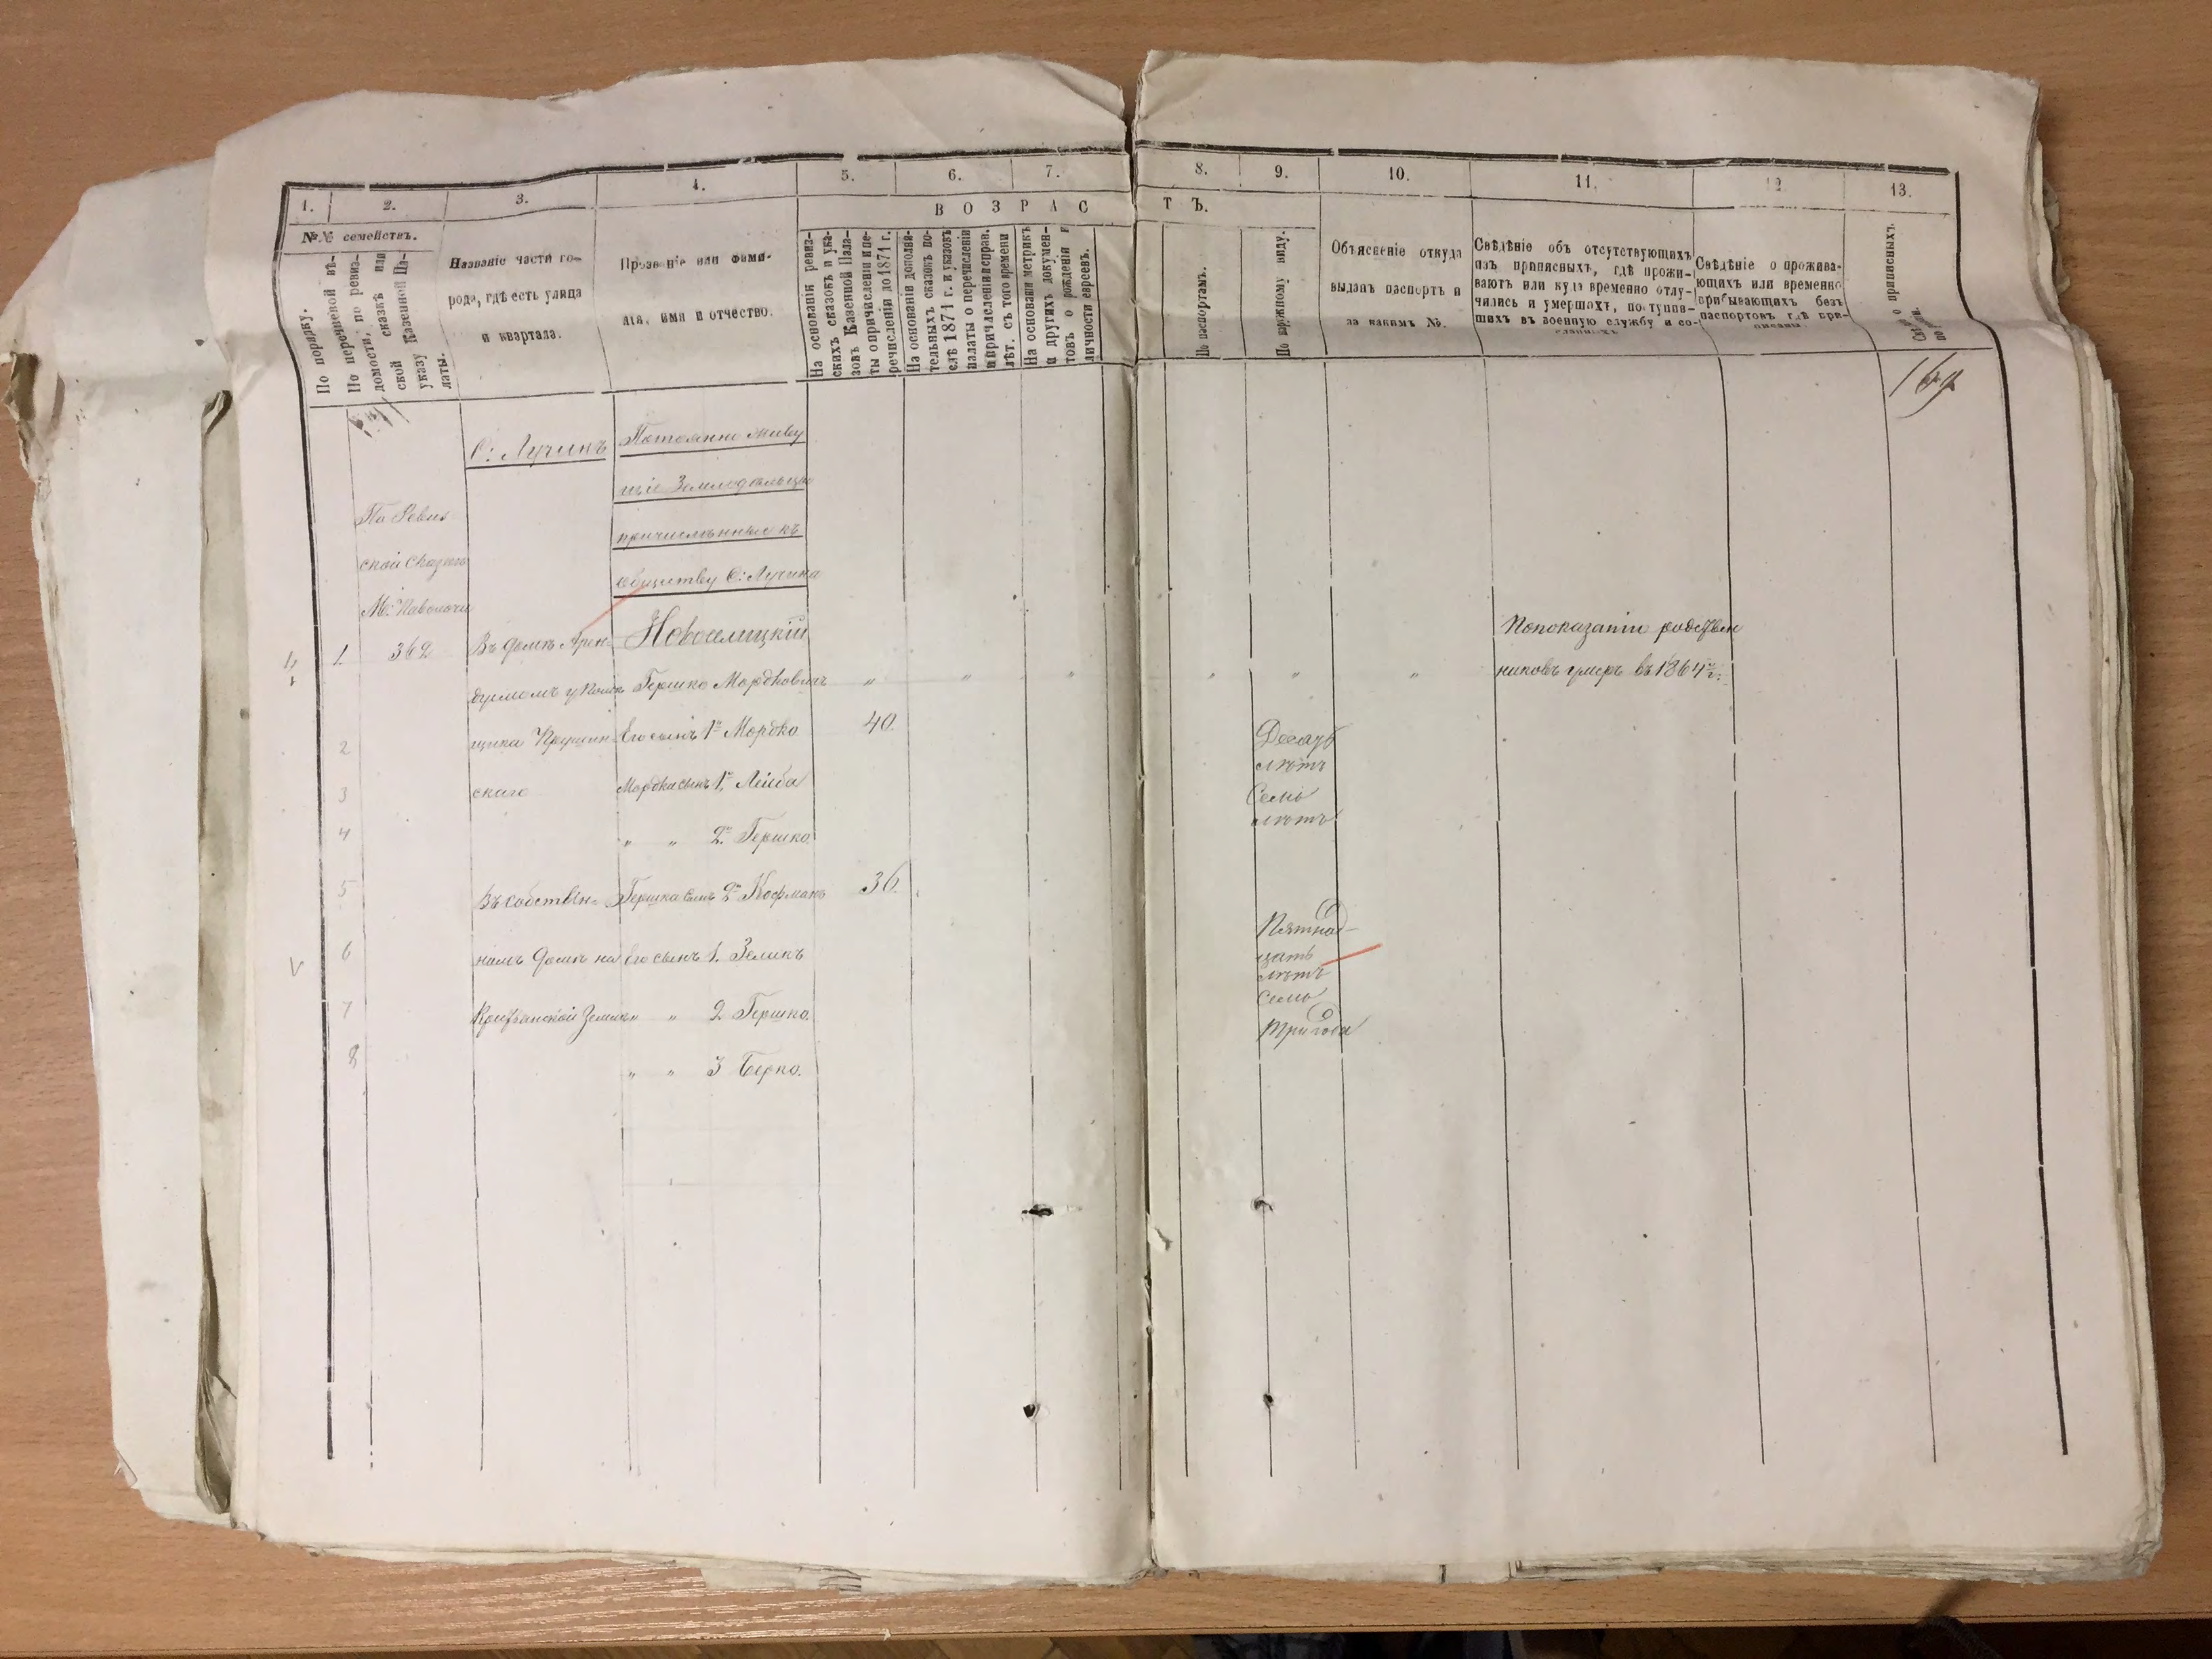 1.
2.
3.
4.
5.
6.
7.
8.
9.
10.
11.
12
13.
№№ семействъ.
По порядку.
По перечневой вѣ-
домости, по ревиз-
ской сказкѣ или
указу Казенной Па-
латы.
Названіе части го-
рода, гдѣ есть улица
и квартала.
Прозваніе или фами-
лія, имя и отчество.
ВОЗРАСТЪ.
На основаніи ревиз-
скихъ сказокъ и ука-
зовъ Казенной Пала-
ты о причисленіи и пе-
речисленіи до 1871 г.
На основаніи дополни-
тельныхъ сказокъ по-
слѣ 1871 г. и указовъ
палаты о перечисленіи
и причисленіи и справ.
лѣт. съ того времени
На основаніи метрикъ
и другихъ докумен-
товъ о рожденіи и
личности евреевъ.
По паспортамъ.
По наружному виду.
Объясненіе откуда
выданъ паспортъ и
за какимъ №.
Свѣдѣніе объ отсутствующихъ
изъ приписныхъ, гдѣ прожи-
ваютъ или куда временно отлу-
чились и умершихъ, поступив-
шихъ въ военную службу и со-
сланныхъ
Свѣдѣніе о прожива-
ющихъ или временно
прибывающихъ безъ
паспортовъ гдѣ при-
писаны.
о приписныхъ.
С: Лучинъ
Постоянно живу
щіе Земледѣльцы
причисленные къ
обществу С: Лучина
По Ревиз
ской сказкѣ
М: Паволочи
1 362 Въ домѣ Арен- Новоселицкій
дуемомъ у Помѣ Гершко Мордковичъ " " " " " "
Попоказанію родствен
никовъ умеръ въ 1864 г.
2 щика Его сынъ 1й Мордко 40. Десять
лѣтъ
3 скаго Мордка сынъ 1й Лейба Семь
лѣтъ
4 " " 2й Гершко
5 Въ собствен- Гершка сынъ 2й Кофманъ 36.
Пятнад-
6 номъ домѣ на Его сынъ 1. Зеликъ цать
лѣтъ
7 Крестьянской Землѣ " " 2 Гершко. Семь
8 " " 3 Берко. три года